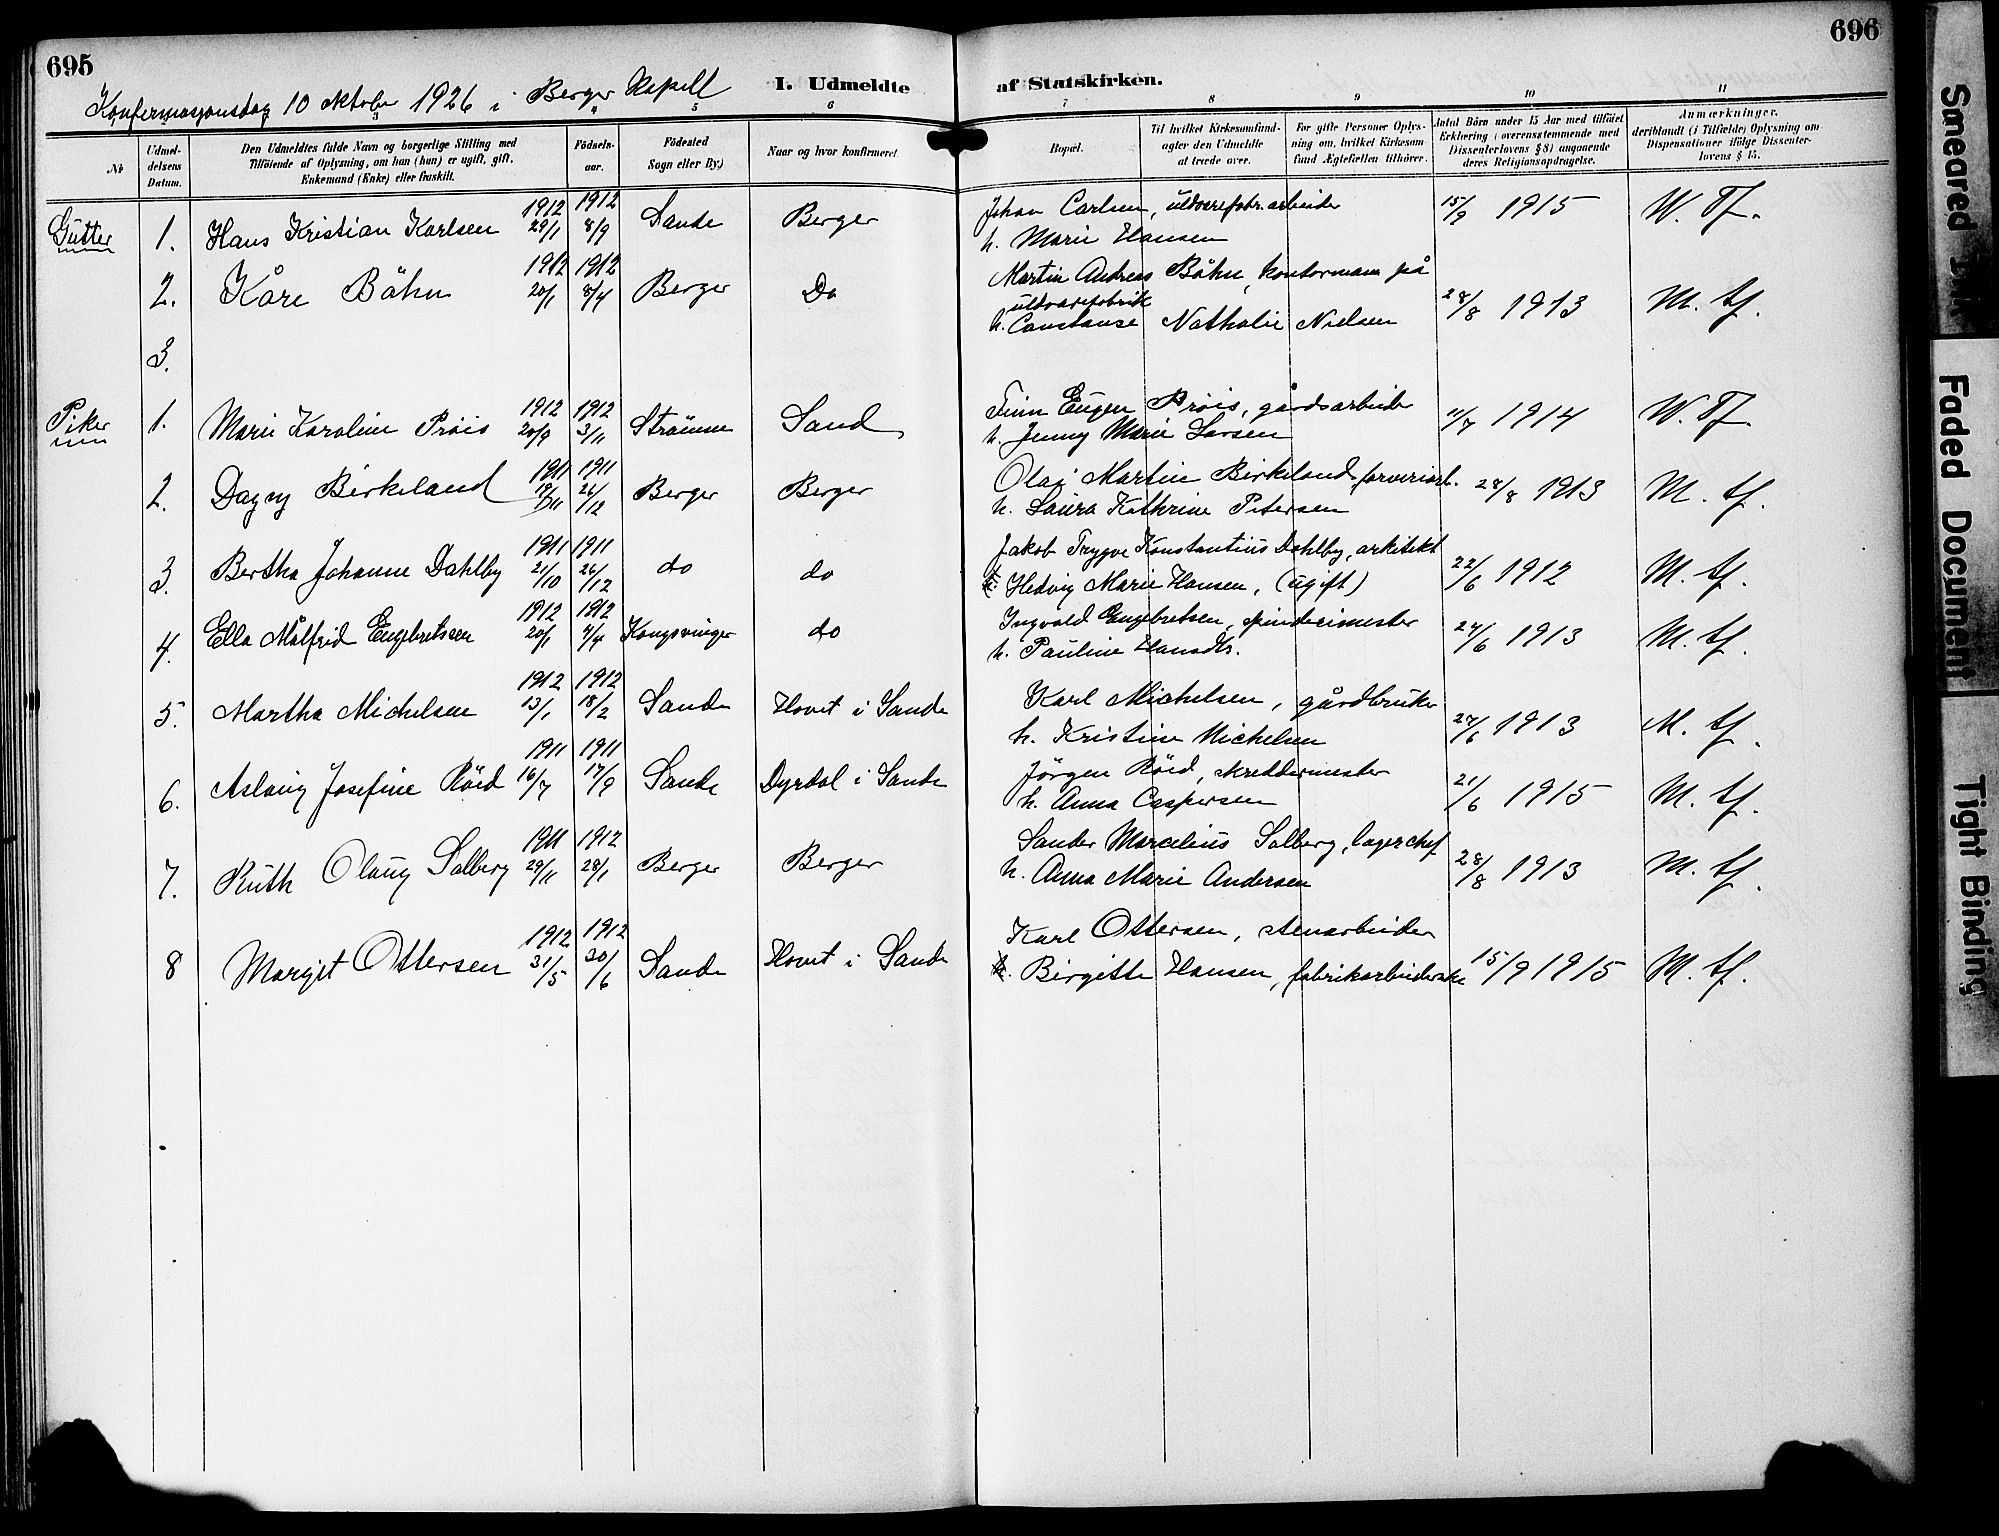 695
696
Konfermasjonsdag 10 oktober 1926 i Berger Kapell
I. Udmeldte af Statskirken.
3 4 5 6 7 8 9 10 11
№
Udmel-
delsens
Datum.
Den Udmeldtes fulde Navn og borgerlige Stilling med
Tilföiende af Oplysning, om han (hun) er ugift, gift,
Enkemand (Enke) eller fraskilt.
Födsels-
aar.
Födested
Sogn eller By.)
Naar og hvor konfirmeret
Bopæl.
Til hvilket Kirkesamfund-
agter den Udmeldte
at træde over.
For gifte Personer Oplys-
ning om, hvilket Kirkesam-
fund Ægtefællen tilhörer.
Antal Börn under 15 Aar med tilföiet
Erklæring (overensstemmende med
Dissenterlovens § 8) angaaende
deres Religionsopdragelse.
Anmærkninger.
deriblandt (i Tilfælde) Oplysning om
Dispensationer ifölge Dissenter-
lovens § 15.
Gutter 1. Hans Kristian Karlsen 1912 29/1 1912 8/9 Sande Berger
Johan Carlsen, uldvarefabr. arbeider 15/9 1915 W. Tf.
h. Marie Hansen
2. Kåre Böhn 1912 20/1 1912 8/4 Berger Do
Martin Andreas Böhn, kontormann på
uldvarefabrik 28/8 1913 M. tf.
h. Constanse Nathalie Nielsen
3.
Piker 1. Marie Karoline Pröis 1912 20/9 1912 3/11 Strömm Sand
Finn Eugen Pröis, gårdsarbeider 11/7 1914 W. Tf.
h. Jenny Marie Larsen
2. Dagny Birkeland 1911 19/11 1911 26/12 Berger Berger
Olaf Martin Birkeland, farveriarb. 28/8 1913 M. tf.
h. Laura Kathrine Petersen
3. Bertha Johanne Dahlby 1911 21/10 1911 26/12 do do
Jakob Trygve Konstantius Dahlby, arkitekt 22/6 1912 M. tf.
Hedvig Marie Hansen, (ugift)
4. Ella Målfrid Engebretsen 1912 20/1 1912 4/4 Kongsvinger do
Ingvald Engebretsen, spinderimester 24/6 1913 M. tf.
h. Pauline Hansdtr.
5. Martha Michelsen 1912 13/1 1912 18/2 Sande Hovet i Sande
Karl Michelsen, gårdbruker 24/6 1913 M. tf.
h. Kristine Michelsen
6. Aslaug Josefine Röed 1911 16/7 1911 17/9 Sande Dyrdal i Sande
Jörgen Röed, skreddermester 21/6 1915 M. tf.
h. Anna Caspersen
7. Ruth Olaug Solberg 1911 29/11 1912 28/1 Berger Berger
Sander Marcelius Solberg, lagerchef 28/8 1913 M. tf.
h. Anna Marie Andersen
8 Margit Ottersen 1912 31/5 1912 30/6 Sande Hovet i Sande
Karl Ottersen, stenarbeider
Birgitte Hansen, fabrikarbeiderske 15/9 1915 M. tf.
Smeared
Faded Document
Tight Binding